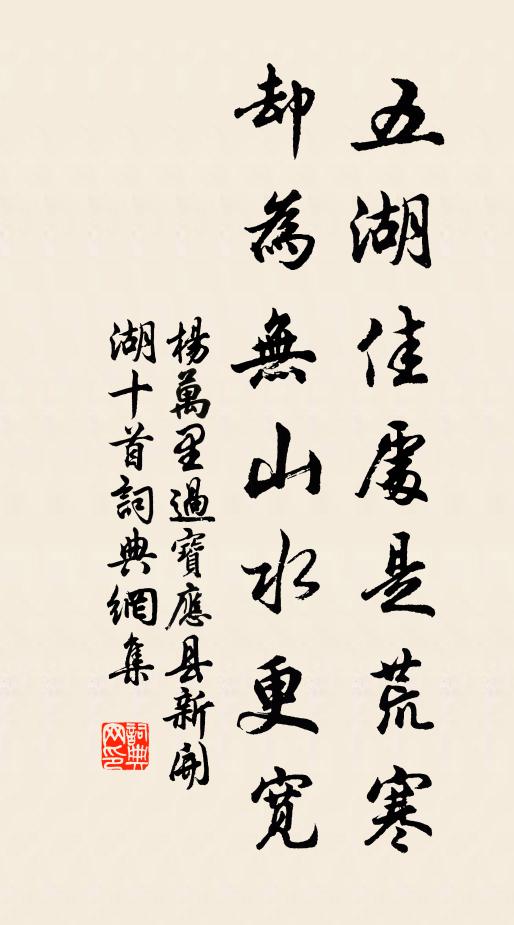 五湖佳處是荒寒
却為無山水更寬
楊萬里過寶應县新開
湖十首詞典網集
詞典网印